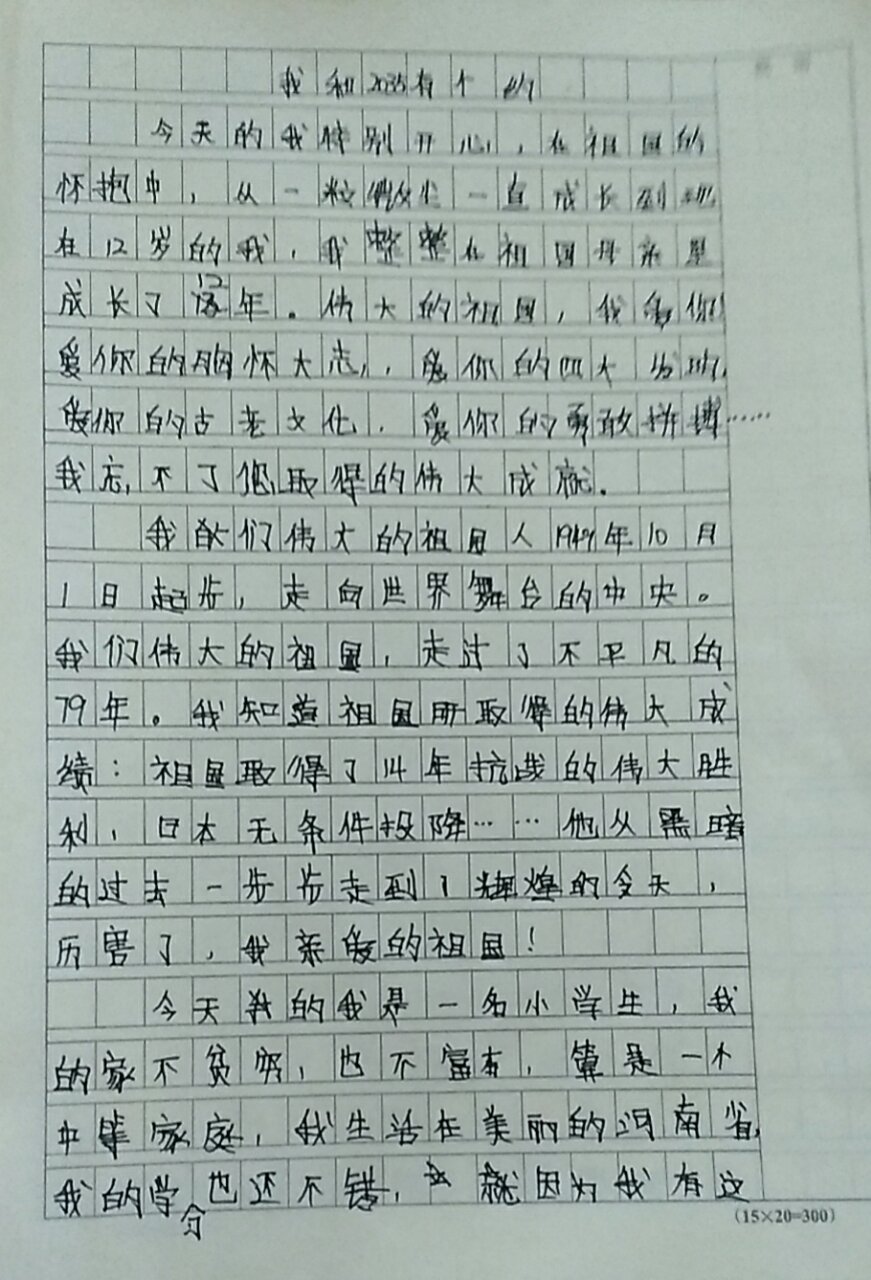 我和2035有个约
今天的我特别开心，在祖国的
怀抱中，从一粒微尘一直成长到现
在12岁的我，我整整在祖国母亲里
成长了12年。伟大的祖国，我爱你
爱你的胸怀大志，爱你的四大发明，
爱你的古老文化，爱你的勇敢拼搏……
我忘不了您取得的伟大成就。
我们伟大的祖国人1949年10月
1日起步，走向世界舞台的中央。
我们伟大的祖国，走过了不平凡的
79年。我知道祖国所取得的伟大成
绩：祖国取得了14年抗战的伟大胜
利，日本无条件投降……他从黑暗
的过去一步步走到了辉煌的今天，
历害了，我亲爱的祖国！
今天我的我是一名小学生，我
的家不贫穷，也不富有，算是一个
中等家庭，我生活在美丽的河南省，
我的学分也还不错，就因为我有这
(15×20=300)